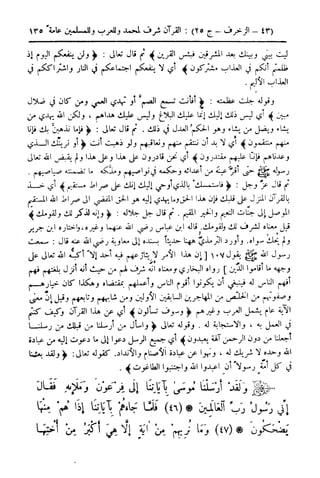 (٤٣) - الزخرف - ج ٢٥) : القرآن شرف لمحمد وللعرب وللمسلمين عامة ١٣٥
ليت بيني وبينك بعد المشرقين فبئس القرين ﴾ ثم قال تعالى : ﴿ ولن ينفعكم اليوم إذ
ظلمتم أنكم في العذاب مشتركون ﴾ أي لا ينفعكم اجتماعكم في النار واشتراككم في
العذاب الأليم .
وقوله جلت عظمته : ﴿ أفأنت تسمع الصم أو تهدي العمي ومن كان في ضلال
مبين ﴾ أي ليس ذلك إليك إنما عليك البلاغ وليس عليك هداهم ، ولكن الله يهدي من
يشاء ويضل من يشاء وهو الحكم العدل في ذلك . ثم قال تعالى : ﴿ فإما نذهبن بك فإنا
منهم منتقمون ﴾ أي لا بد أن ننتقم منهم ونعاقبهم ولو ذهبت أنت ﴿ أو نرينك الذي
وعدناهم فإنا عليهم مقتدرون ﴾ أي نحن قادرون على هذا وعلى هذا ولم يقبض الله تعالى
رسوله حتى أقر عينه من أعدائه وحكمه في نواصيهم وملكه ما تضمنته صياصيهم .
ثم قال عز وجل : ﴿ فاستمسك بالذي أوحي إليك إنك على صراط مستقيم ﴾ أي خذ
بالقرآن المنزل على قلبك فإن هذا الحق وما يهدي إليه هو الحق المفضي إلى صراط الله المستقيم
الموصل إلى جنات النعيم والخير المقيم . ثم قال جل جلاله : ﴿ وإنه لذكر لك ولقومك ﴾
قيل معناه لشرف لك ولقومك. قاله ابن عباس رضي الله عنهما وغيره، واختاره ابن جرير
ولم يحك سواه. وأورد الترمذي ههنا حديثاً بسنده إلى معاوية رضي الله عنه قال : سمعت
رسول الله ﷺ يقول ١٠٧ [ إن هذا الأمر لا ينازعهم فيه أحد إلا أكبه الله تعالى على
وجهه ما أقاموا الدين ] رواه البخاري ومعناه أنه شرف لهم من حيث أنه أنزل بلغتهم فهم
أفهم الناس له فينبغي أن يكونوا أقوم الناس وأعملهم بمقتضاه وهكذا كان خيارهم
وصفوتهم من الخلص من المهاجرين السابقين الأولين ومن شابههم وتابعهم وقيل إن معنى
الآية عام يشمل العرب وغيرهم ﴿ وسوف تسألون ﴾ أي عن هذا القرآن وكيف كنتم
في العمل به ، والاستجابة له . وقوله تعالى ﴿ واسأل من أرسلنا من قبلك من رسلنا
أجعلنا من دون الرحمن آلهة يعبدون ﴾ أي جميع الرسل دعوا إلى ما دعوت إليه من عبادة
الله وحده لا شريك له ، ونهوا عن عبادة الأصنام والأنداد. كقوله تعالى: ﴿ ولقد بعثنا
في كل أمة رسولاً أن اعبدوا الله واجتنبوا الطاغوت ﴾ .
وَلَقَدْ أَرْسَلْنَا مُوسَىٰ بِآيَاتِنَا إِلَىٰ فِرْعَوْنَ وَمَلَإِيْهِ فَقَالَ
إِنِّي رَسُولُ رَبِّ الْعَالَمِينَ (٤٦) فَلَمَّا جَاءَهُمْ بِآيَاتِنَا إِذَا هُمْ مِنْهَا
يَضْحَكُونَ (٤٧) وَمَا نُرِيهِمْ مِنْ آيَةٍ إِلَّا هِيَ أَكْبَرُ مِنْ أُخْتِهَا